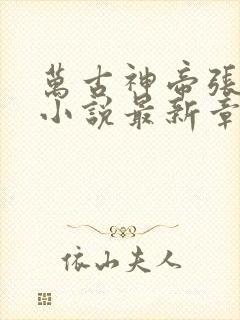 萬古神帝張
小說最新章
依山夫人